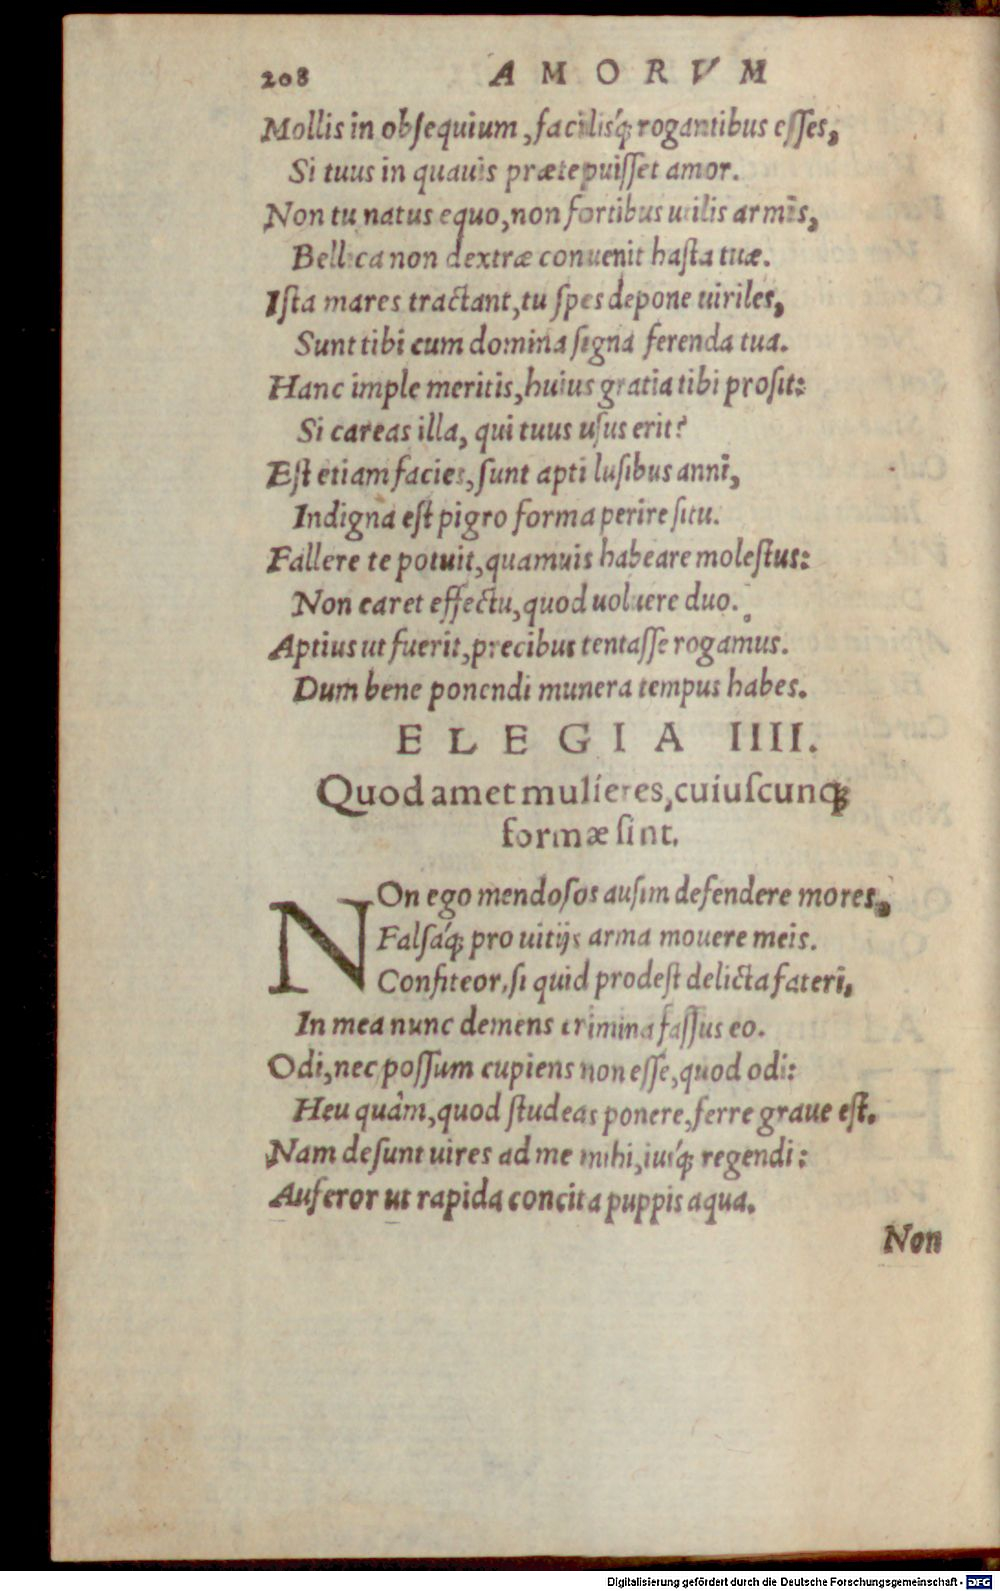 208 AMORVM
Mollis in obſequium, facilisq́; rogantibus eſſes,
Si tuus in quauis prætepuiſſet amor.
Non tu natus equo, non fortibus utilis armis,
Bellica non dextræ conuenit haſta tuæ.
Iſta mares tractant, tu ſpes depone uiriles,
Sunt tibi cum domina ſigna ferenda tua.
Hanc imple meritis, huius gratia tibi proſit:
Si careas illa, qui tuus uſus erit?
Eſt etiam facies, ſunt apti luſibus anni,
Indigna eſt pigro forma perire ſitu.
Fallere te potuit, quamuis habeare moleſtus:
Non caret effectu, quod uoluere duo.
Aptius ut fuerit, precibus tentaſſe rogamus.
Dum bene ponendi munera tempus habes.
ELEGIA IIII.
Quod amet mulieres, cuiuſcunq;
formæ ſint.
NOn ego mendoſos auſim defendere mores,
Falſaq́; pro uitijs arma mouere meis.
Confiteor, ſi quid prodeſt delicta fateri,
In mea nunc demens crimina faſſus eo.
Odi, nec poſſum cupiens non eſſe, quod odi:
Heu quàm, quod ſtudeas ponere, ferre graue eſt.
Nam deſunt uires ad me mihi, iusq́; regendi:
Auferor ut rapida concita puppis aqua.
Non
Digitalisierung gefördert durch die Deutsche Forschungsgemeinschaft - DFG